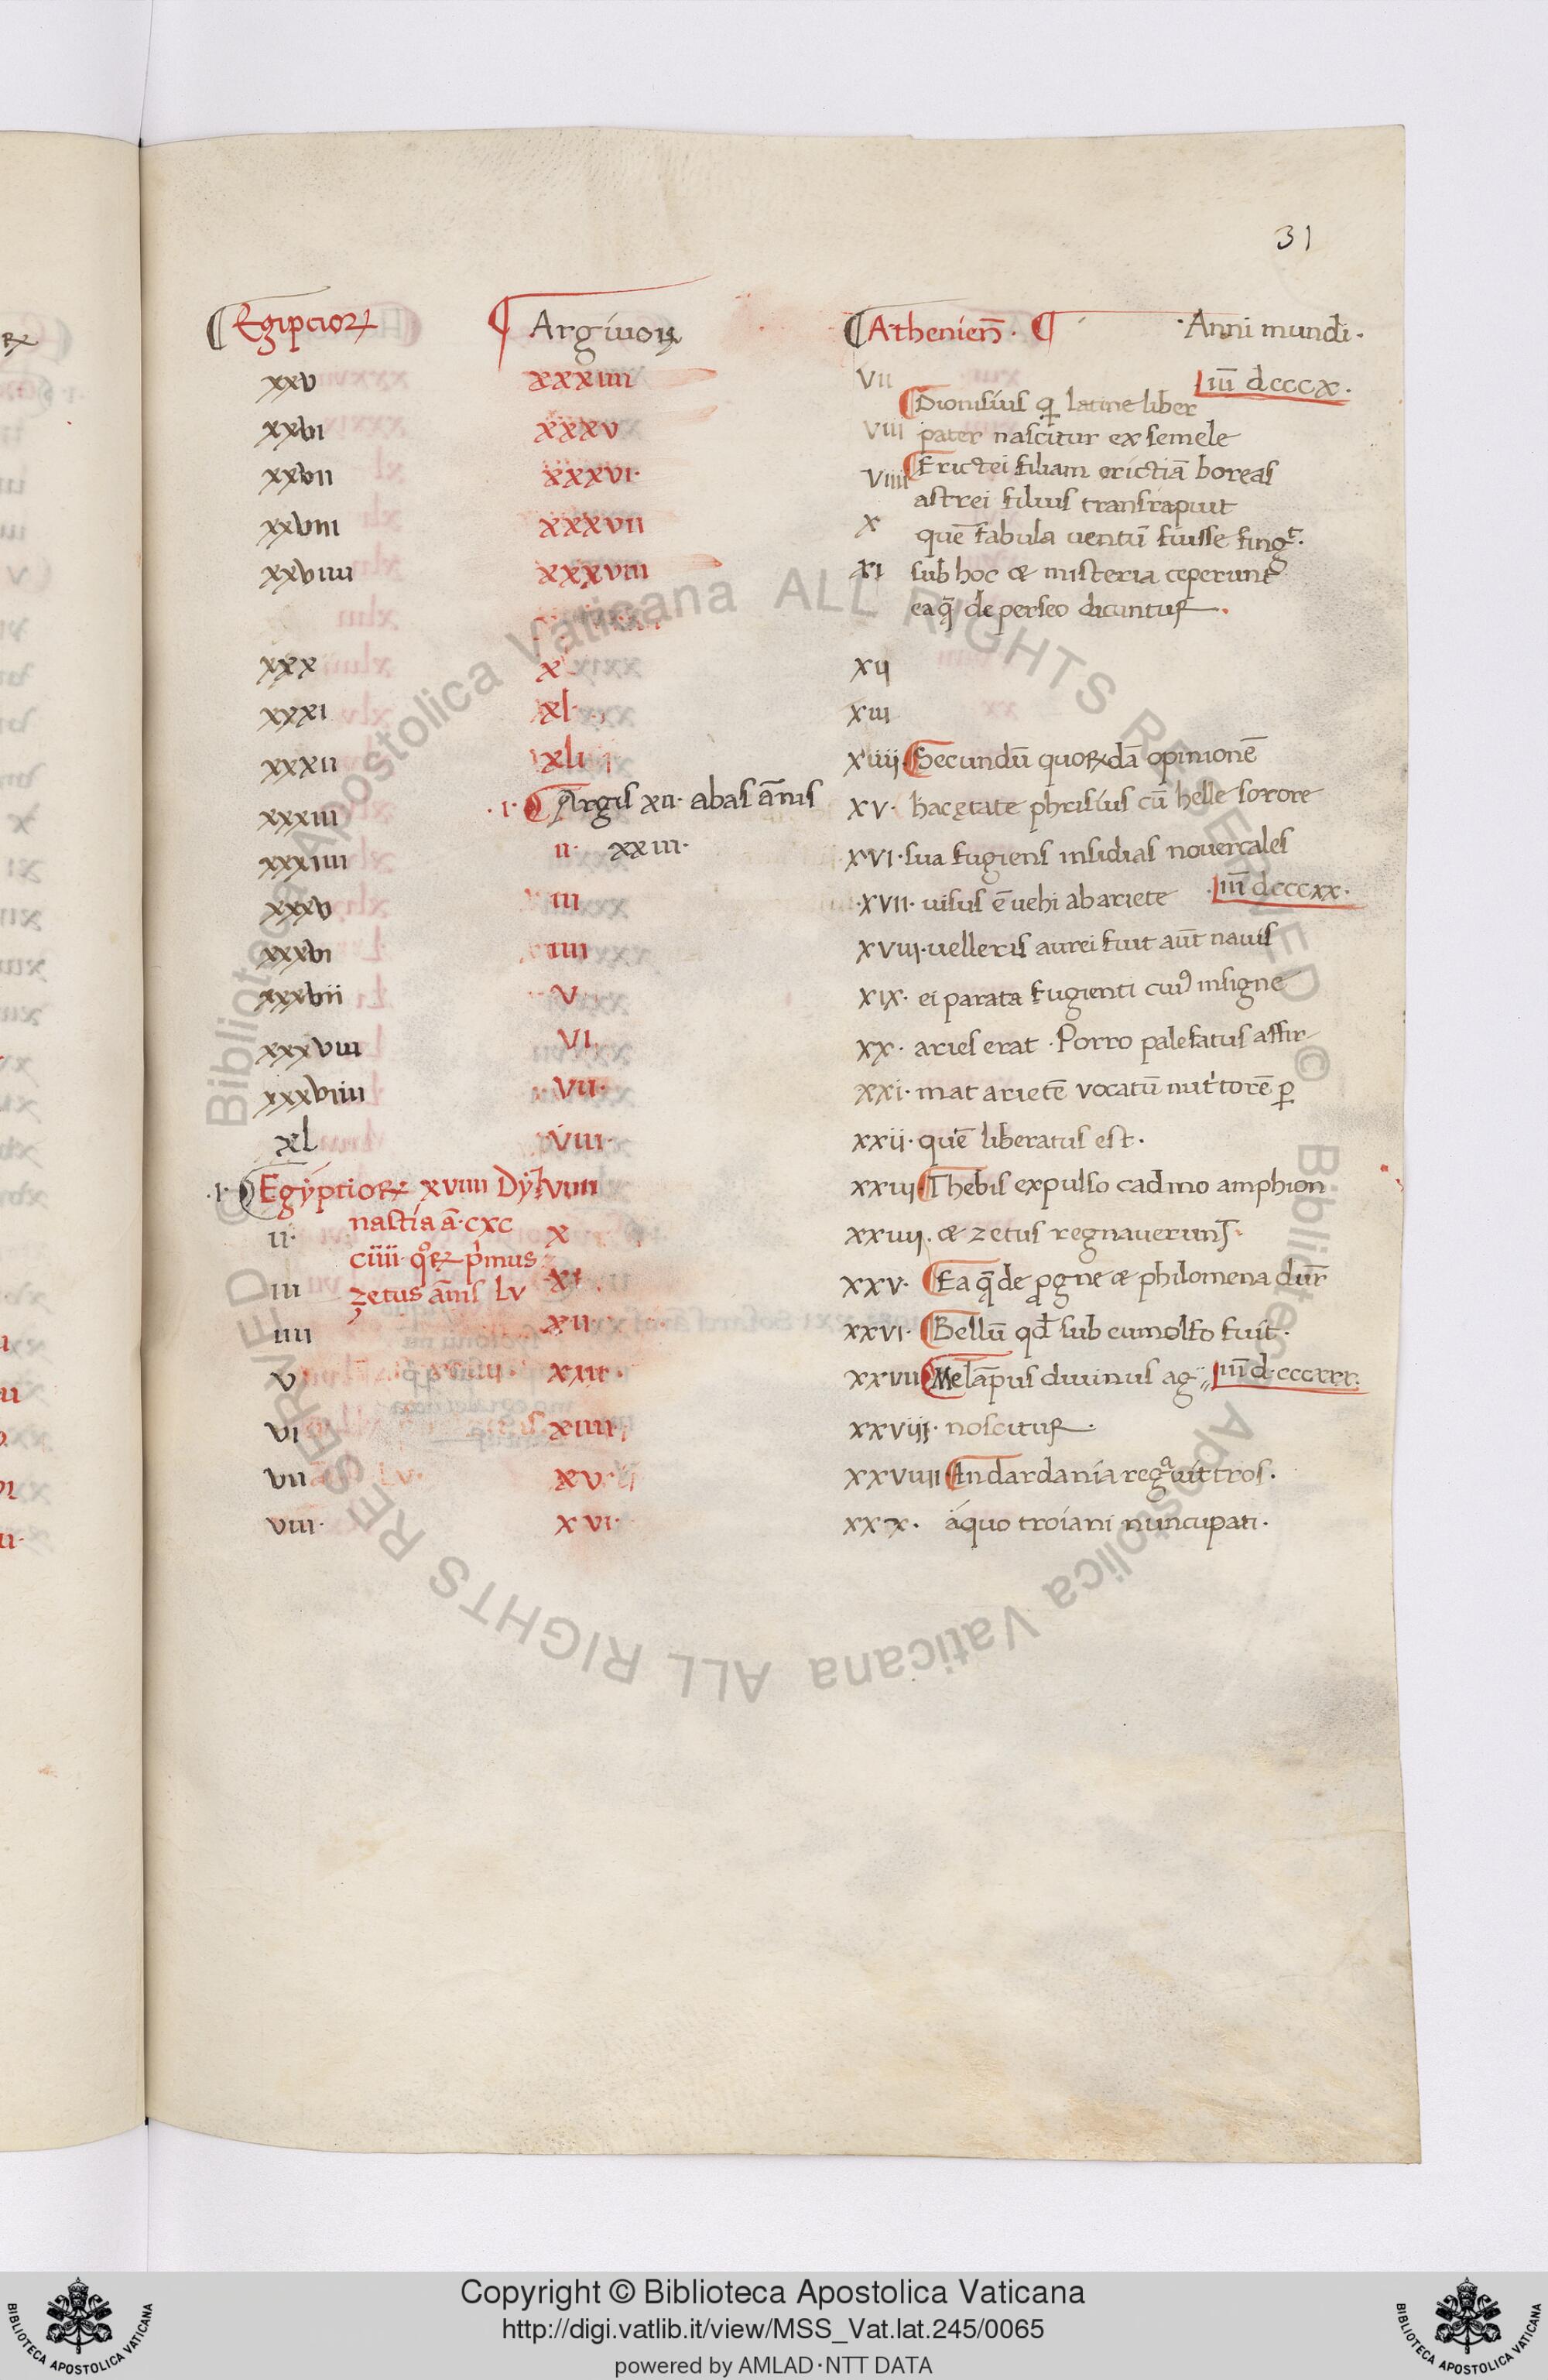 31
¶Egipcioꝝ ¶ Argiuoꝝ ¶Athenien̄· ¶ ·Anni mundi·
xxv xxxiiii vii iii̅ dcccx·
¶Dionisius q̣ latine liber
xxvi xxxv viii pater nascitur ex semele
xxvii xxxvi· viiii ¶Erictei filiam erictiā boreas
astrei filius transrapuit
xxviii xxxvii x quē fabula uentū fuisse fingᵗ·
xxviiii xxxviii xi sub hoc & misteria ceperunt
ea q̄ de perseo dicuntur·
xxx x xii
xxxi xl· xiii
xxxii xli xiiii ¶Secundū quoꝝdā opinionē
xxxiii ·i· ¶Argis xii· abas ānis xv· hac ętate phrisius cū helle sorore
xxxiiii ii· xxiii· xvi· sua fugiens insidias nouercales
xxxv iii ·xvii· uisus ē uehi ab ariete iii̅ dcccxx·
xxxvi iiii xviii· uelleris aurei fuit aūt nauis
xxxvii v xix· ei parata fugienti cuiꝰ insigne
xxxviii vi xx· aries erat · Porro palefatus affir
xxxviiii vii· xxi· mat arietē vocatū nutⁱtorē ꝑ
xl viii· xxii· quē liberatus est·
·i· ¶Egyptioꝝ xviiii Dy viiii xxiii ¶Thebis expulso cadmo amphion
nastia ā·cxc
ii· x xxiiii· & zetus regnauerunt·
ciiii· qͦꝝ pⁱmus
iii zetus ānis lv xi xxv· ¶Ea q̄ de ꝓgne & philomena dn̄r
iiii xii xxvi· ¶Bellū qd̄ sub eumolfo fuit·
v xiii· xxvii ¶Melāpus diuinus ag iii̅ d·cccxxx·
vi xiiii· xxviii· noscitur·
vii xv· xxviiii ¶In dardania regᵃuit tros·
viii· xvi· xxx· á quo troiani nuncupati·
© Biblioteca Apostolica Vaticana ALL RIGHTS RESERVED © Biblioteca Apostolica Vaticana ALL RIGHTS RESERVED
Copyright © Biblioteca Apostolica Vaticana
http://digi.vatlib.it/view/MSS_Vat.lat.245/0065
powered by AMLAD·NTT DATA
BIBLIOTECA APOSTOLICA VATICANA
BIBLIOTECA APOSTOLICA VATICANA